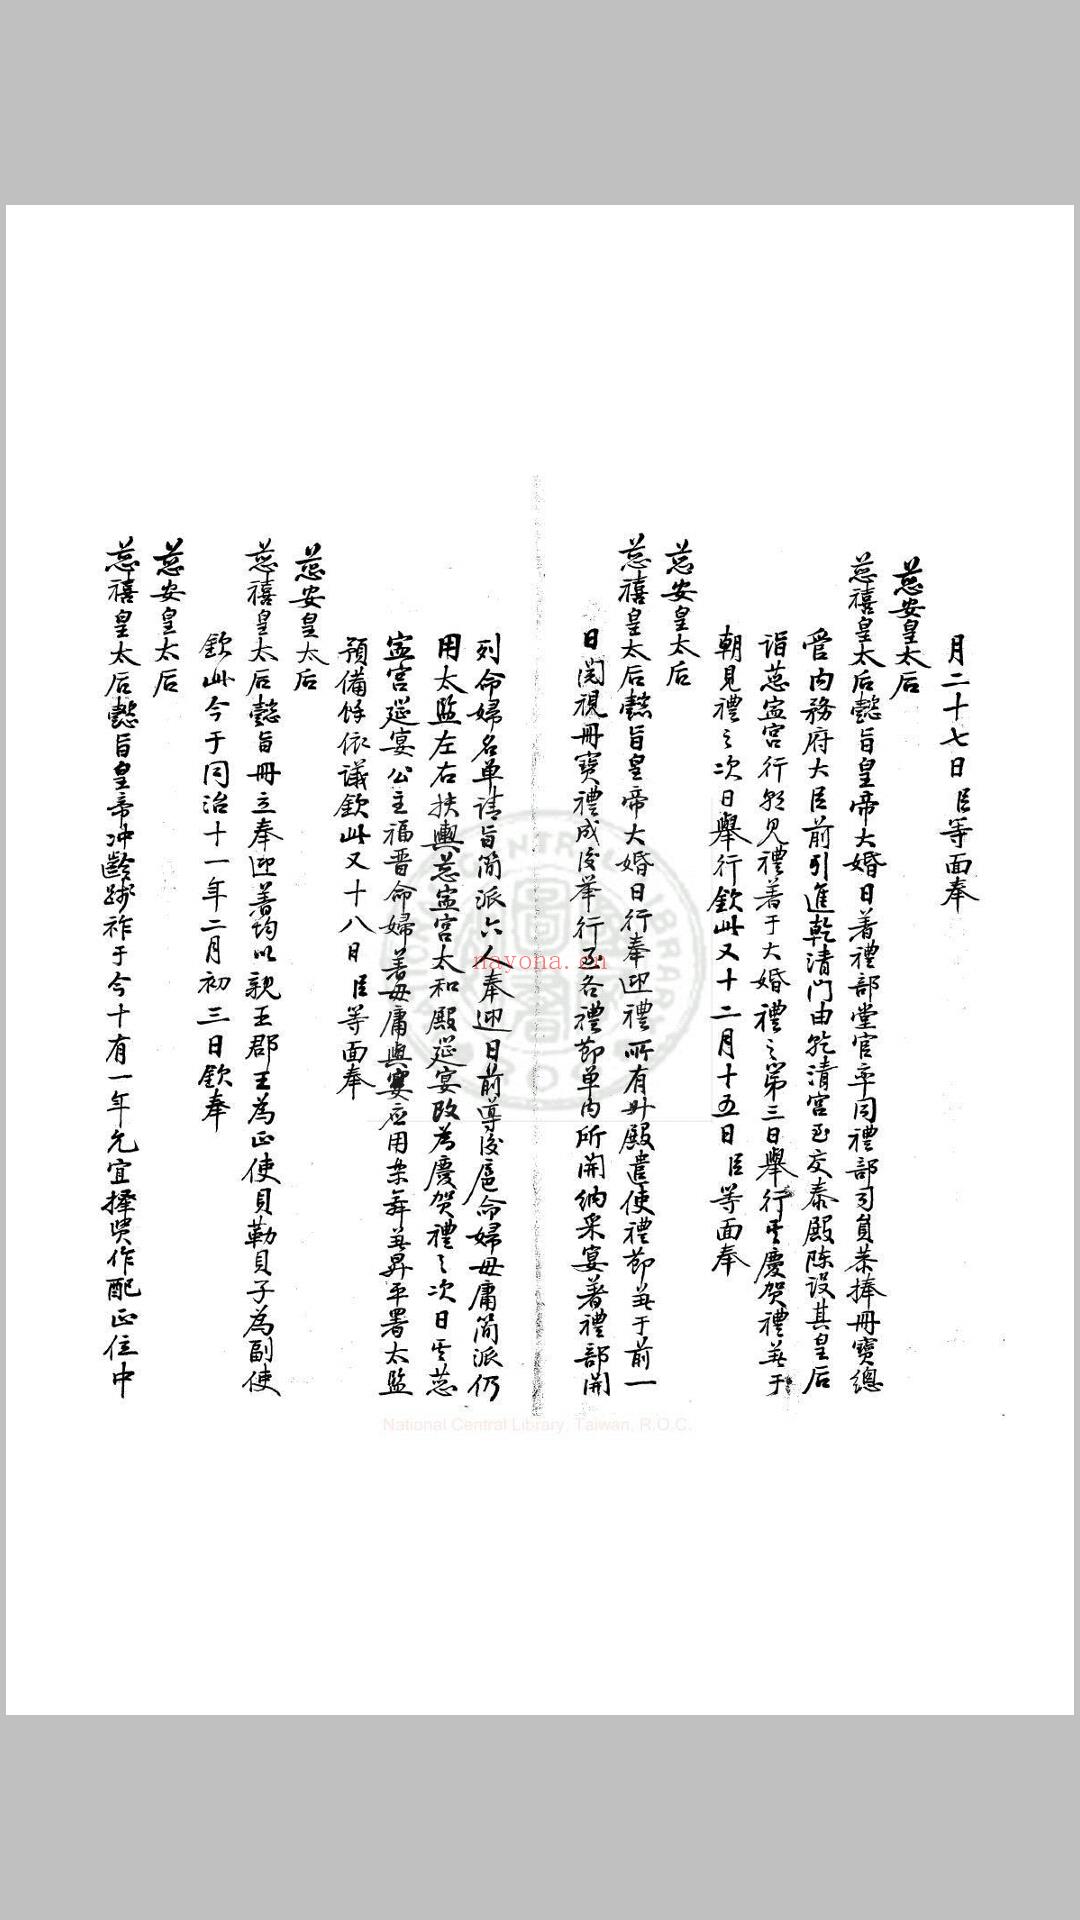 月二十七日臣等面奉
慈安皇太后
慈禧皇太后懿旨皇帝大婚日著禮部堂官率同禮部司員恭捧冊寶總
管内務府大臣前引進乾清門由乾清宮至交泰殿陈设其皇后
詣慈寧宮行朝見禮著于大婚禮之第三日舉行其慶贺禮並于
朝見禮之次日舉行欽此又十二月十五日臣等面奉
慈安皇太后
慈禧皇太后懿旨皇帝大婚日行奉迎禮所有升殿遣使禮節並于前一
日閱視冊寶禮成後举行至各禮節单内所開納采宴著禮部開
列命婦名单請旨簡派六人奉迎日前導後扈命婦毋庸簡派仍
用太監左右扶輿慈寧宮太和殿筵宴改為慶贺禮之次日其慈
寧宮筵宴公主福晋命婦著毋庸與宴应用樂舞並昇平署太監
預備餘依議欽此又十八日臣等面奉
慈安皇太后
慈禧皇太后懿旨冊立奉迎著均以親王郡王為正使貝勒貝子為副使
欽此今于同治十一年二月初三日欽奉
慈安皇太后
慈禧皇太后懿旨皇帝冲齡踐祚于今十有一年允宜擇賢作配正位中
nayona.cn
NATIONAL CENTRAL LIBRARY
National Central Library, Taiwan, R.O.C.